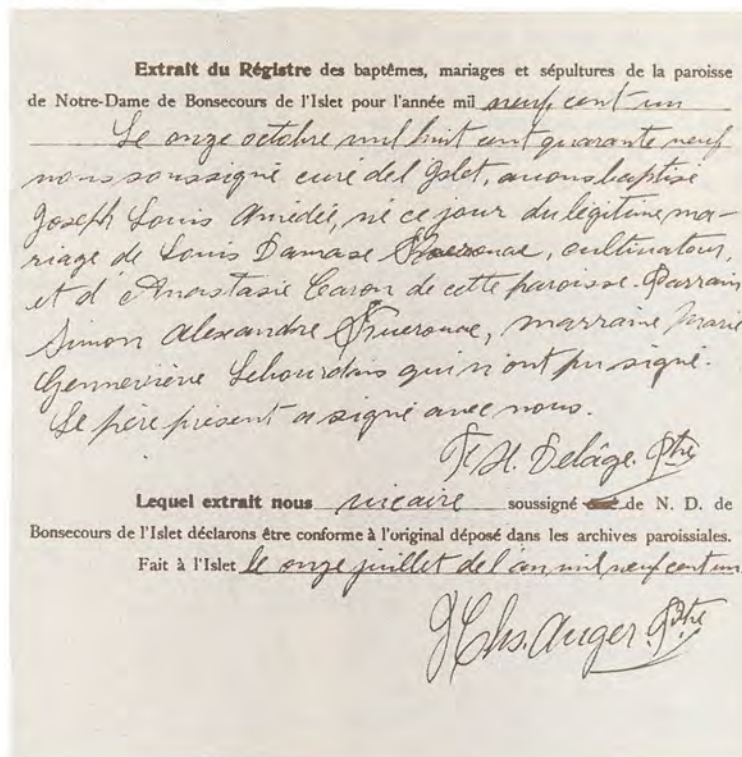 Extrait du Régistre des baptêmes, mariages et sépultures de la paroisse
de Notre-Dame de Bonsecours de l'Islet pour l'année mil neuf cent un
Le onze octobre mil huit cent quarante neuf
nous soussigné curé de l'Islet, avons baptisé
Joseph Louis Amédée, né ce jour du légitime ma-
riage de Louis Damase Kuerouac, cultivateur,
et d'Anastasie Caron de cette paroisse. Parrain
Simon Alexandre Kuerouac, marraine Marie
Genneviève Lebourdais qui n'ont pu signé.
Le père présent a signé avec nous.
F H. Delâge. Ptre
Lequel extrait nous vicaire soussigné de N. D. de
Bonsecours de l'Islet déclarons être conforme à l'original déposé dans les archives paroissiales.
Fait à l'Islet le onze juillet de l'an mil neuf cent un
J Chs. Auger Ptre